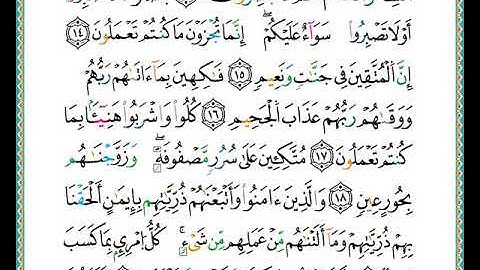 أَوْ لَا تَصْبِرُواْ سَوَآءٌ عَلَيْكُمْ إِنَّمَا تُجْزَوْنَ مَا كُنتُمْ تَعْمَلُونَ ١٤
إِنَّ ٱلْمُتَّقِينَ فِى جَنَّٰتٍ وَنَعِيمٍ ١٥ فَٰكِهِينَ بِمَآ ءَاتَىٰهُمْ رَبُّهُمْ
وَوَقَىٰهُمْ رَبُّهُمْ عَذَابَ ٱلْجَحِيمِ ١٦ كُلُواْ وَٱشْرَبُواْ هَنِيٓـًٔا بِمَا
كُنتُمْ تَعْمَلُونَ ١٧ مُتَّكِـِٔينَ عَلَىٰ سُرُرٍ مَّصْفُوفَةٍ وَزَوَّجْنَٰهُم
بِحُورٍ عِينٍ ١٨ وَٱلَّذِينَ ءَامَنُواْ وَأَتْبَعْنَٰهُمْ ذُرِّيَّٰتِهِم بِإِيمَٰنٍ أَلْحَقْنَا
بِهِمْ ذُرِّيَّٰتِهِمْ وَمَآ أَلَتْنَٰهُم مِّنْ عَمَلِهِم مِّن شَىْءٍ كُلُّ ٱمْرِئٍ بِمَا كَسَبَ